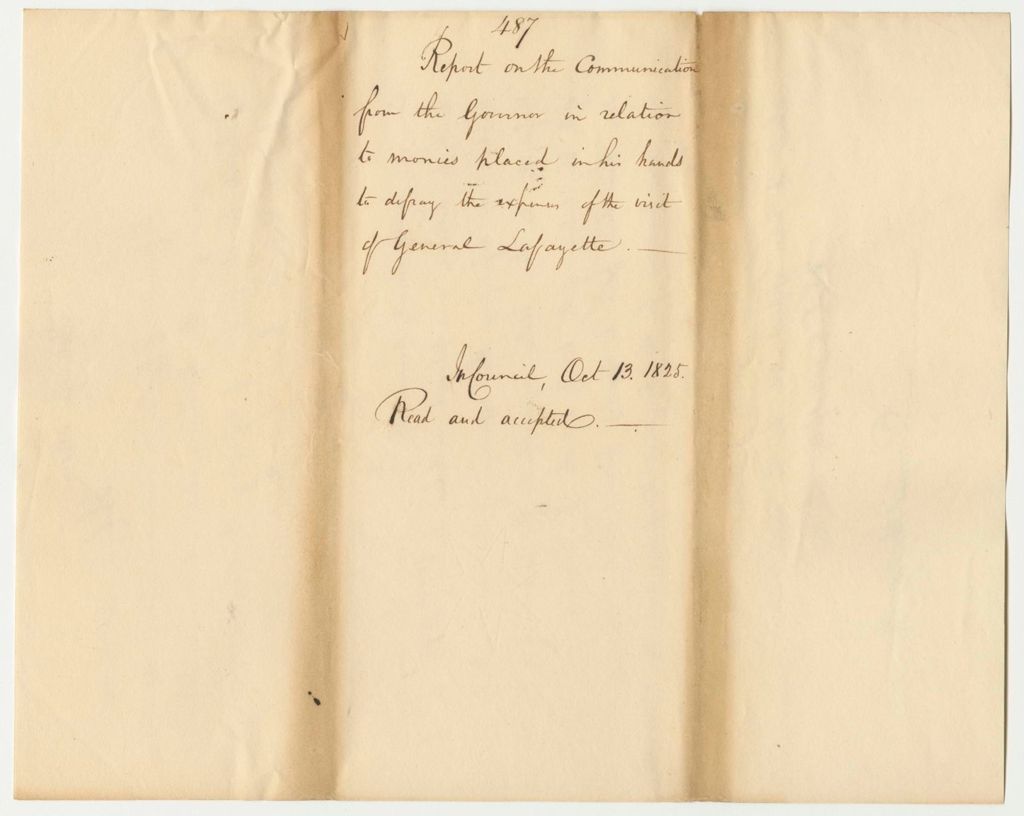 487
Report on the Communication
from the Governor in relation
to monies placed in his hands
to defray the expenses of the visit
of General Lafayette. —
In Council, Oct 13. 1825.
Read and accepted. —